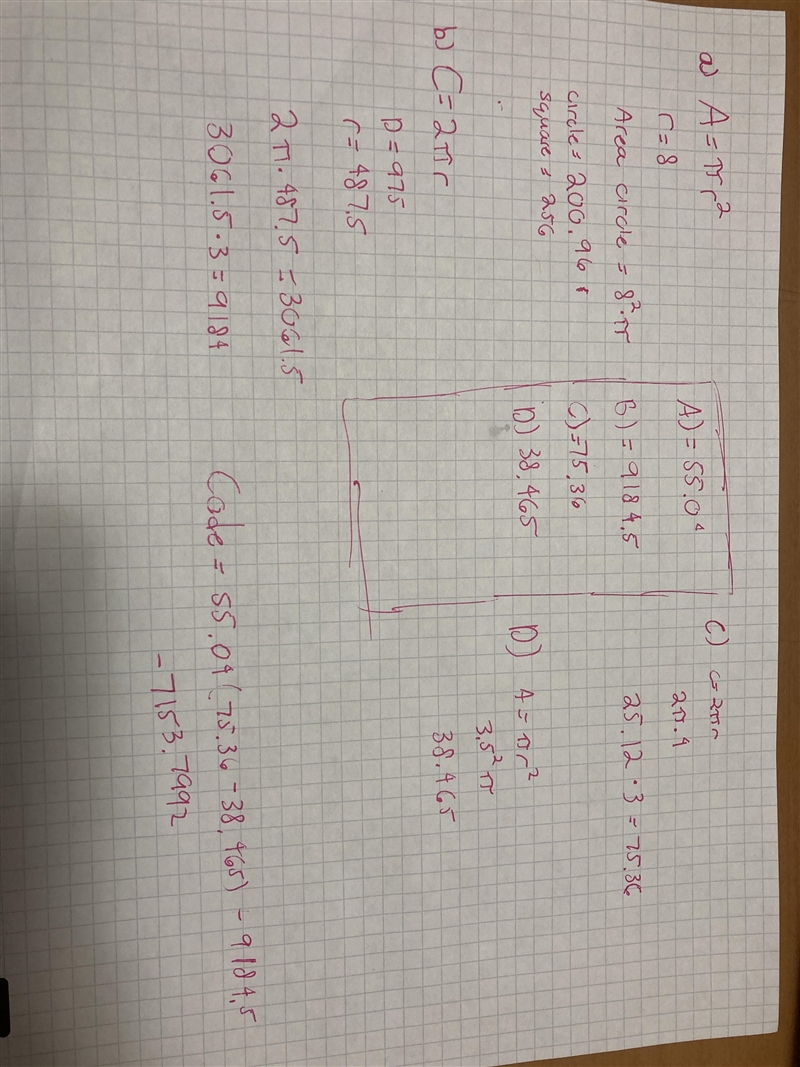 a) A = πr²
r = 8
Area circle = 8²·π
circle = 200,96
square = 256
b) C = 2πr
D = 975
r = 487,5
2π·487,5 = 3061.5
3061.5·3 = 9184
A) = 55.04
B) = 9184,5
C) = 75,36
D) 38,465
C) c=2πr
2π.4
25.12·3 = 75.36
D) A = πr²
3,5²π
38.465
Code = 55.04(75.36-38,465) - 9184,5
-7153.7992